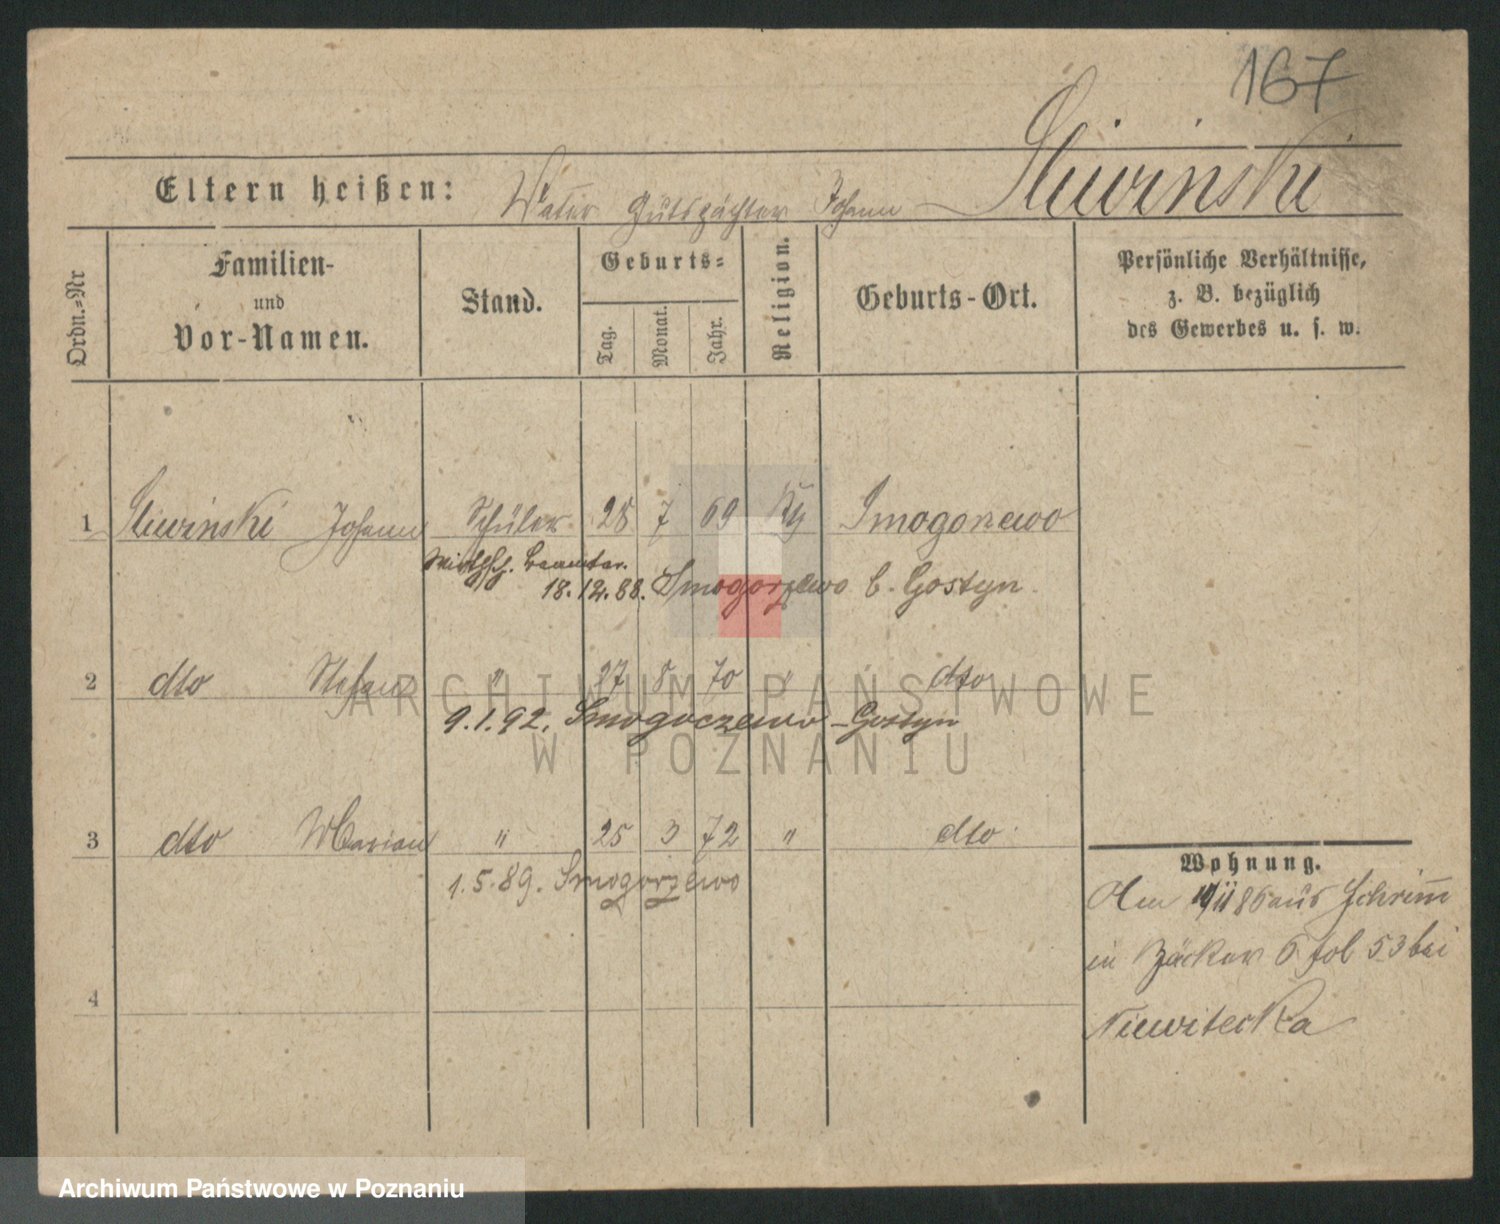 167
Sliwinski
Eltern heißen: Vater Gutspächter Johann
Ordn.-Nr
Familien-
und
Vor-Namen.
Stand.
Geburts-
Tag.
Monat.
Jahr.
Religion.
Geburts-Ort.
Persönliche Verhältnisse,
z. B. bezüglich
des Gewerbes u. s. w.
1 Sliwinski Johann Schüler 28 7 69 Smogorzewo
Wirthsch. Beamter.
18.12.88. Smogorzewo b. Gostyn.
2 dto Stefan " 27 8 70 " dto
9.1.92. Smogorzewo - Gostyn
3 dto Marian " 25 3 72 " dto
1.5.89. Smogorzewo
4
Wohnung.
Am 86 aus Schrimm
in Bäcker 6 fol 53 bei
Niewitecka
ARCHIWUM PAŃSTWOWE
W POZNANIU
Archiwum Państwowe w Poznaniu